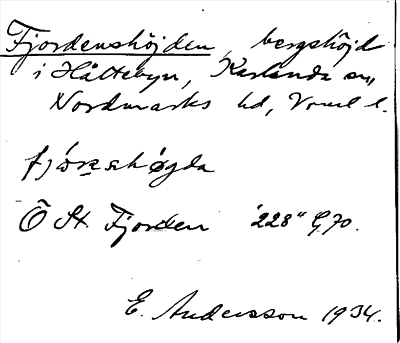 Fjordenshöjden, bergshöjd
i Håltebyn, Karlanda sn,
Nordmarks hd, Vrml l.
fjörashøgda
Ö St. Fjorden "228" G70.
E. Andersson 1934.